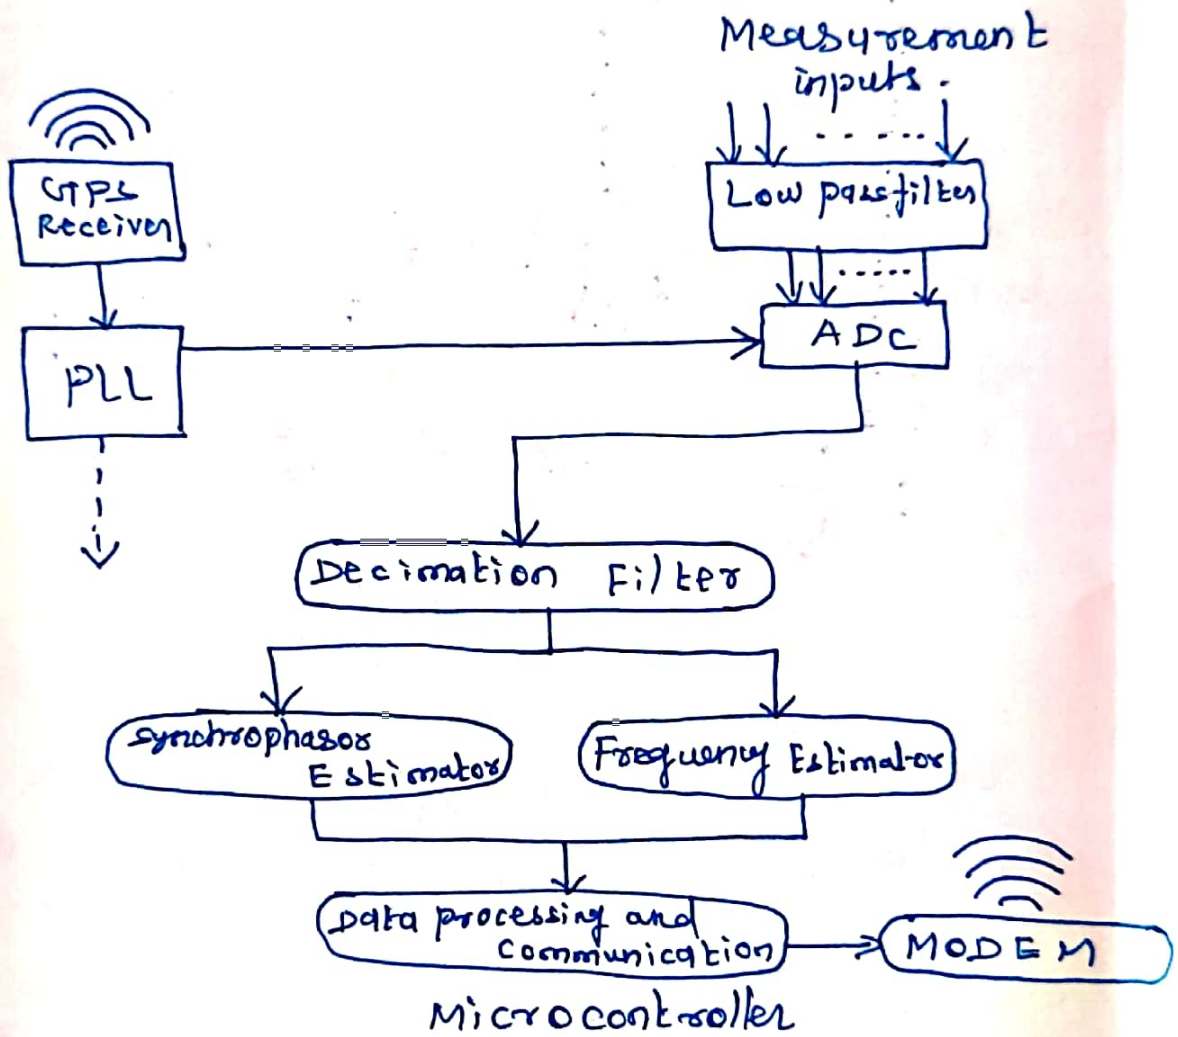 Measurement
inputs.
GPS
Receiver
Low pass filter
ADC
PLL
Decimation Filter
Synchrophasor
Estimator
Frequency Estimator
Data processing and
communication
MODEM
Microcontroller